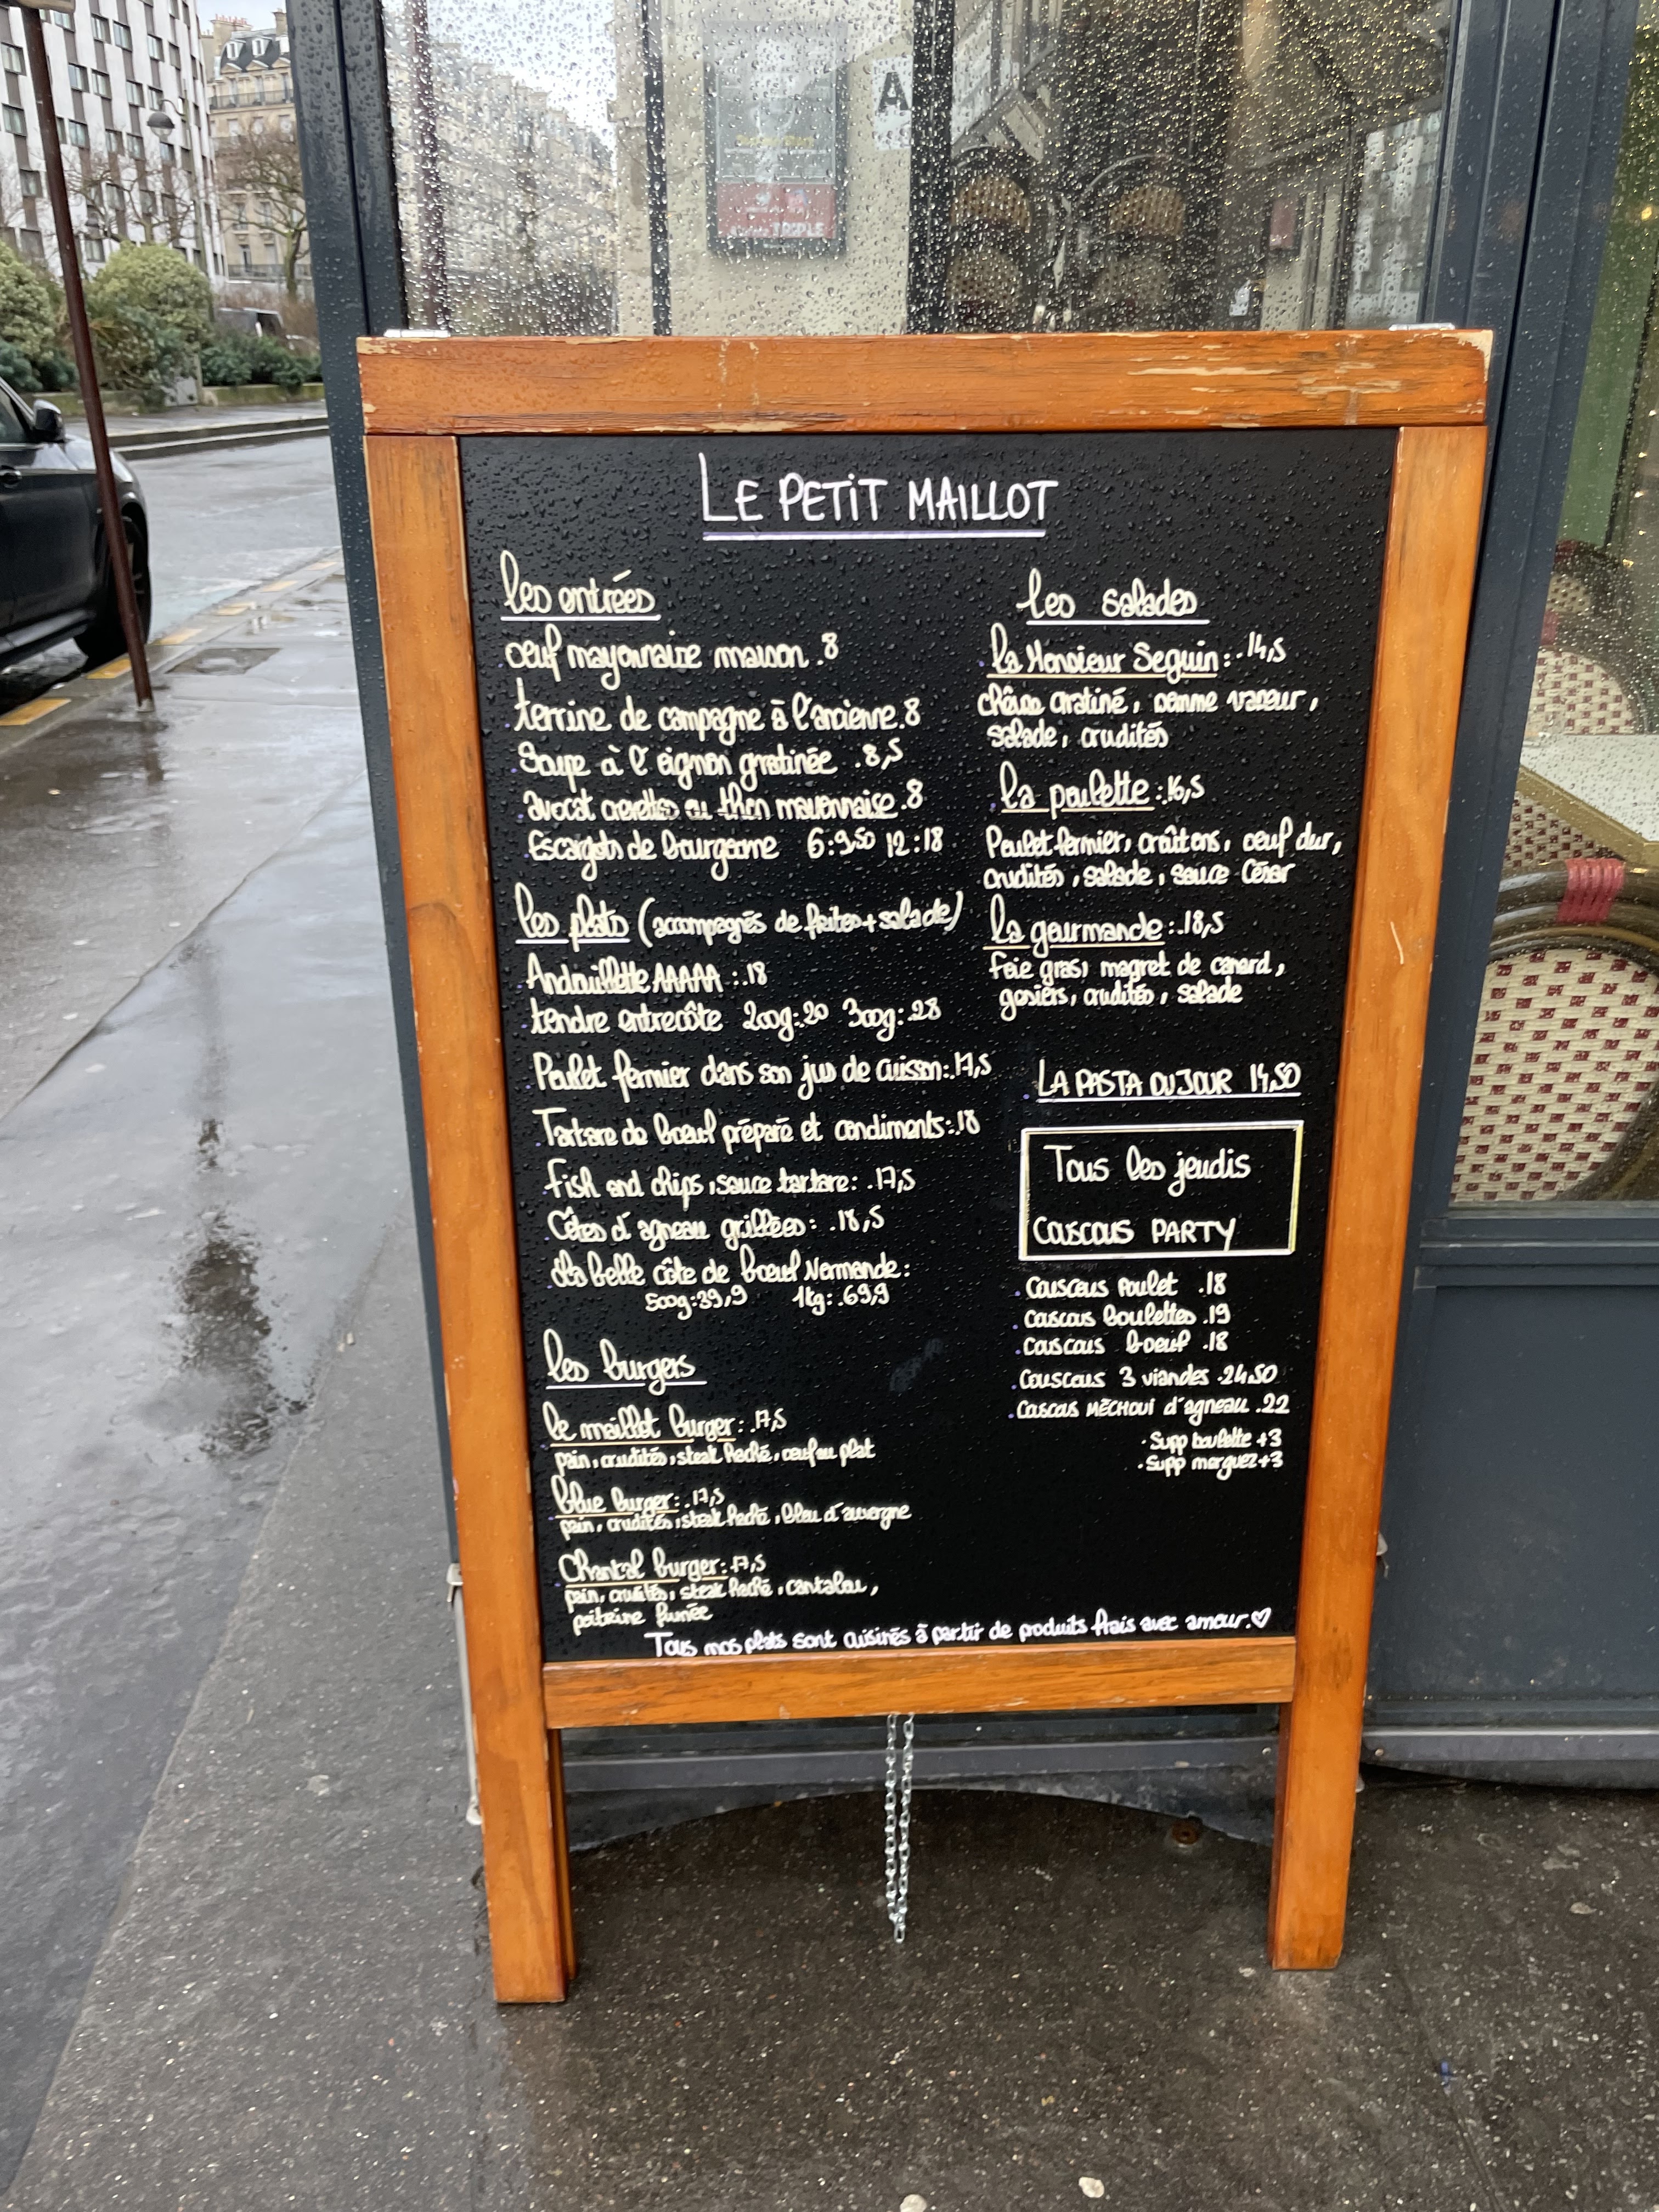 LE PETIT MAILLOT
les entrées
oeuf mayonnaise maison .8
terrine de campagne à l'ancienne.8
Soupe à l'oignon gratinée .8,5
avocat crevettes ou thon mayonnaise.8
Escargots de bourgogne 6:9,50 12:18
les plats (accompagnés de frites+salade)
Andouillette AAAAA :.18
tendre entrecôte 200g:.20 300g:.28
Poulet fermier dans son jus de cuisson:.17,5
Tartare de boeuf préparé et condiments:.18
Fish and chips, sauce tartare: .17,5
Côtes d'agneau grillées: .18,5
La belle côte de boeuf Normande:
500g:39,9 1kg:.69,9
les burgers
le maillot burger:.17,5
pain, crudités, steak haché, oeuf au plat
blue burger:.17,5
pain, crudités, steak haché, bleu d'auvergne
Chantal burger:.17,5
pain, crudités, steak haché, cantalou,
poitrine fumée
les salades
la Monsieur Seguin:.14,5
chèvre gratiné, pomme vapeur,
salade, crudités
la poulette:.16,5
Poulet fermier, croûtons, oeuf dur,
crudités, salade, sauce César
la gourmande:.18,5
foie gras, magret de canard,
gesiers, crudités, salade
LA PASTA DU JOUR 14,50
Tous les jeudis
couscous PARTY
couscous poulet .18
couscous boulettes .19
couscous boeuf .18
couscous 3 viandes .24,50
couscous MÉCHOUI d'agneau .22
. Supp boulette +3
. Supp merguez +3
Tous nos plats sont cuisinés à partir de produits frais avec amour.♡
A
TRIPLE